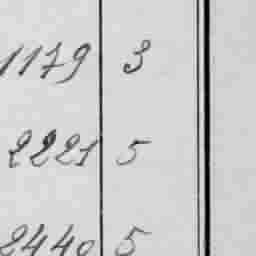 1179 3
2221 5
2440 5